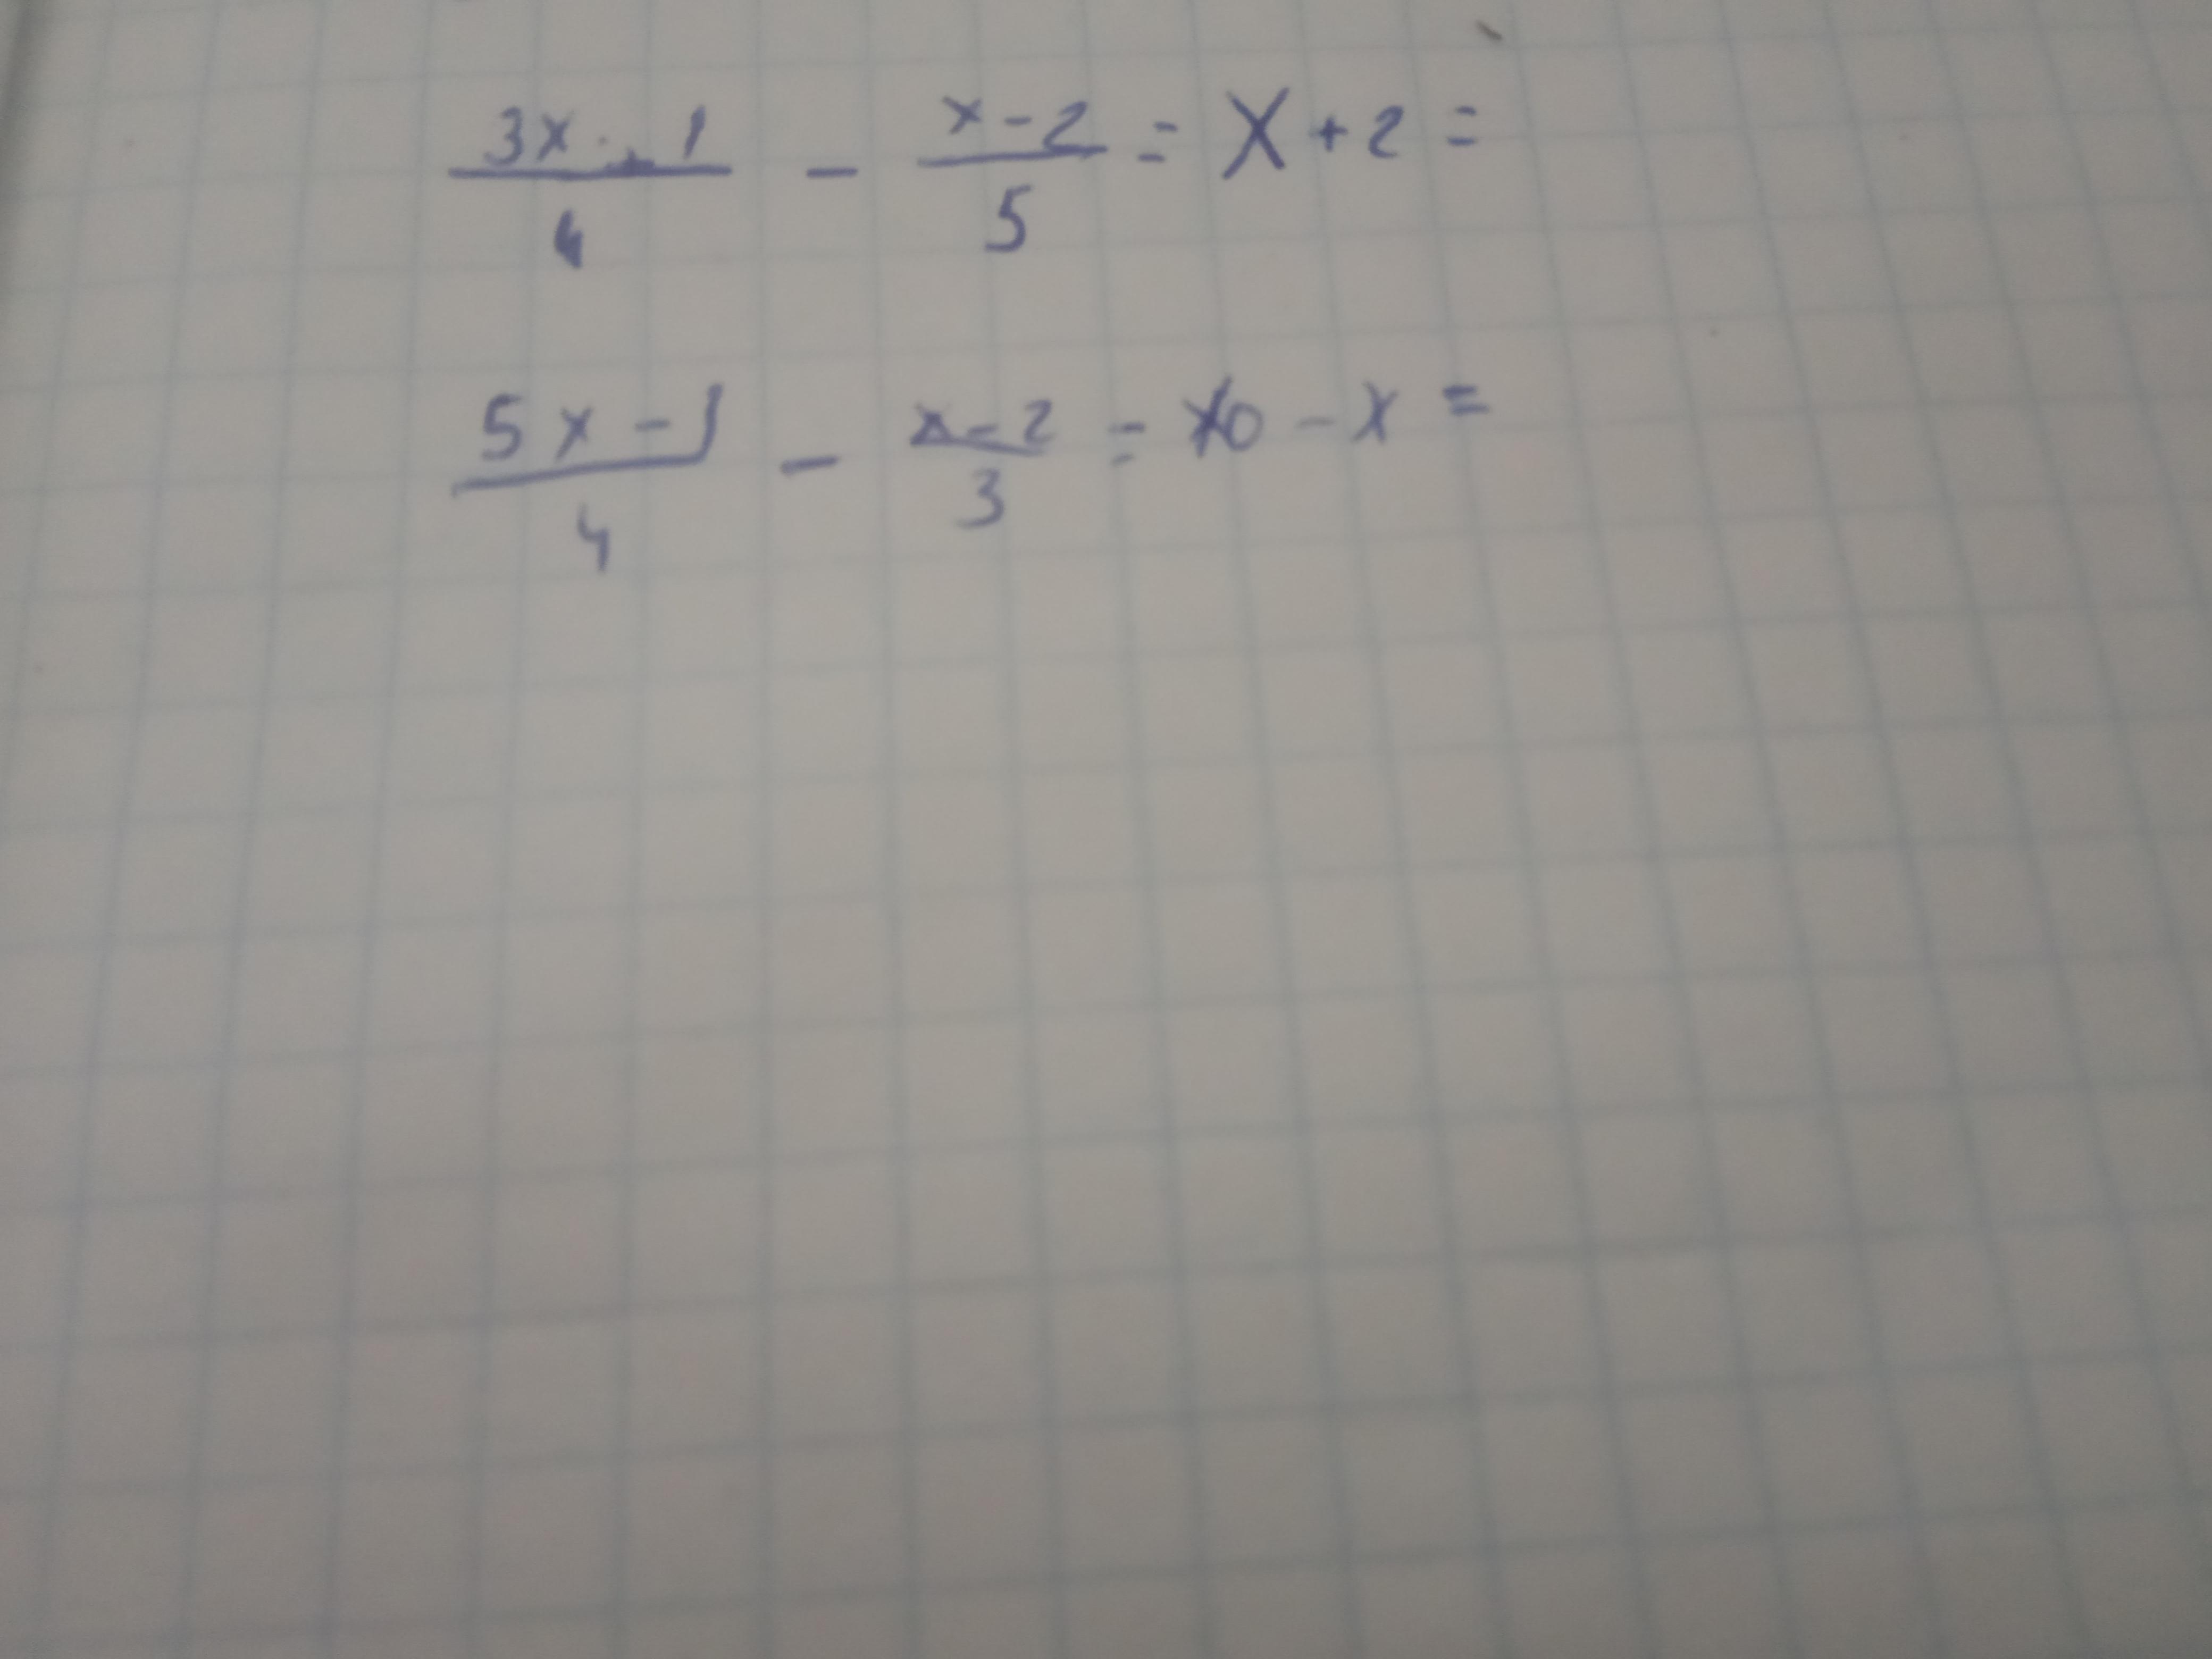 (3x - 1)/4 - (x-2)/5 = x+2 =
(5x-1)/4 - (x-2)/3 = 10-x =